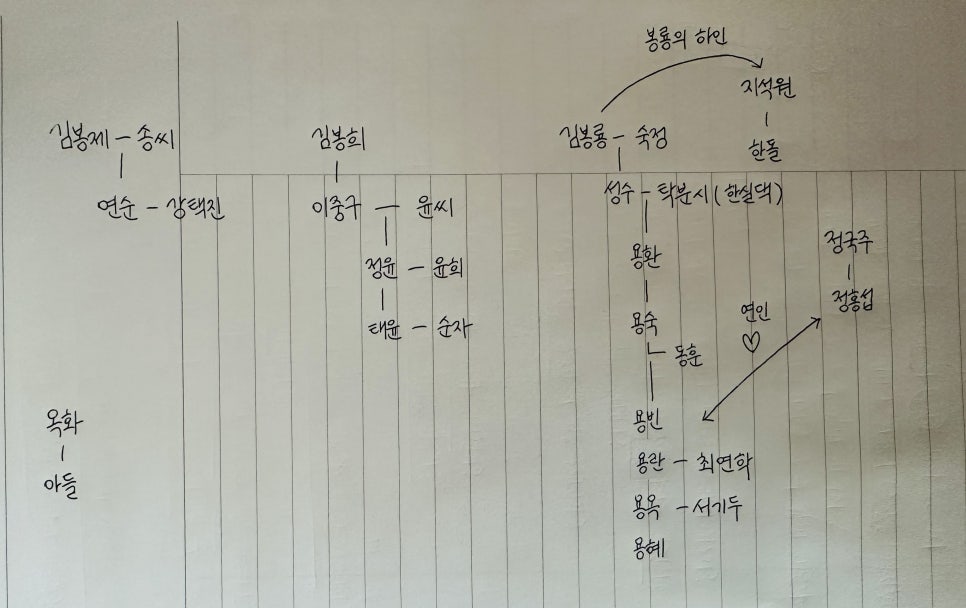 봉룡의 하인
지석원
김봉제 - 송씨
김봉희
김봉룡 - 숙정
한돌
연순 - 강택진
이중구 - 윤씨
성수 - 탁분시 (한실댁)
정국주
용환
정윤 - 윤희
정홍섭
연인
용숙
태윤 - 순자
동훈
용빈
옥화
용란 - 최연학
아들
용옥 - 서기두
용혜